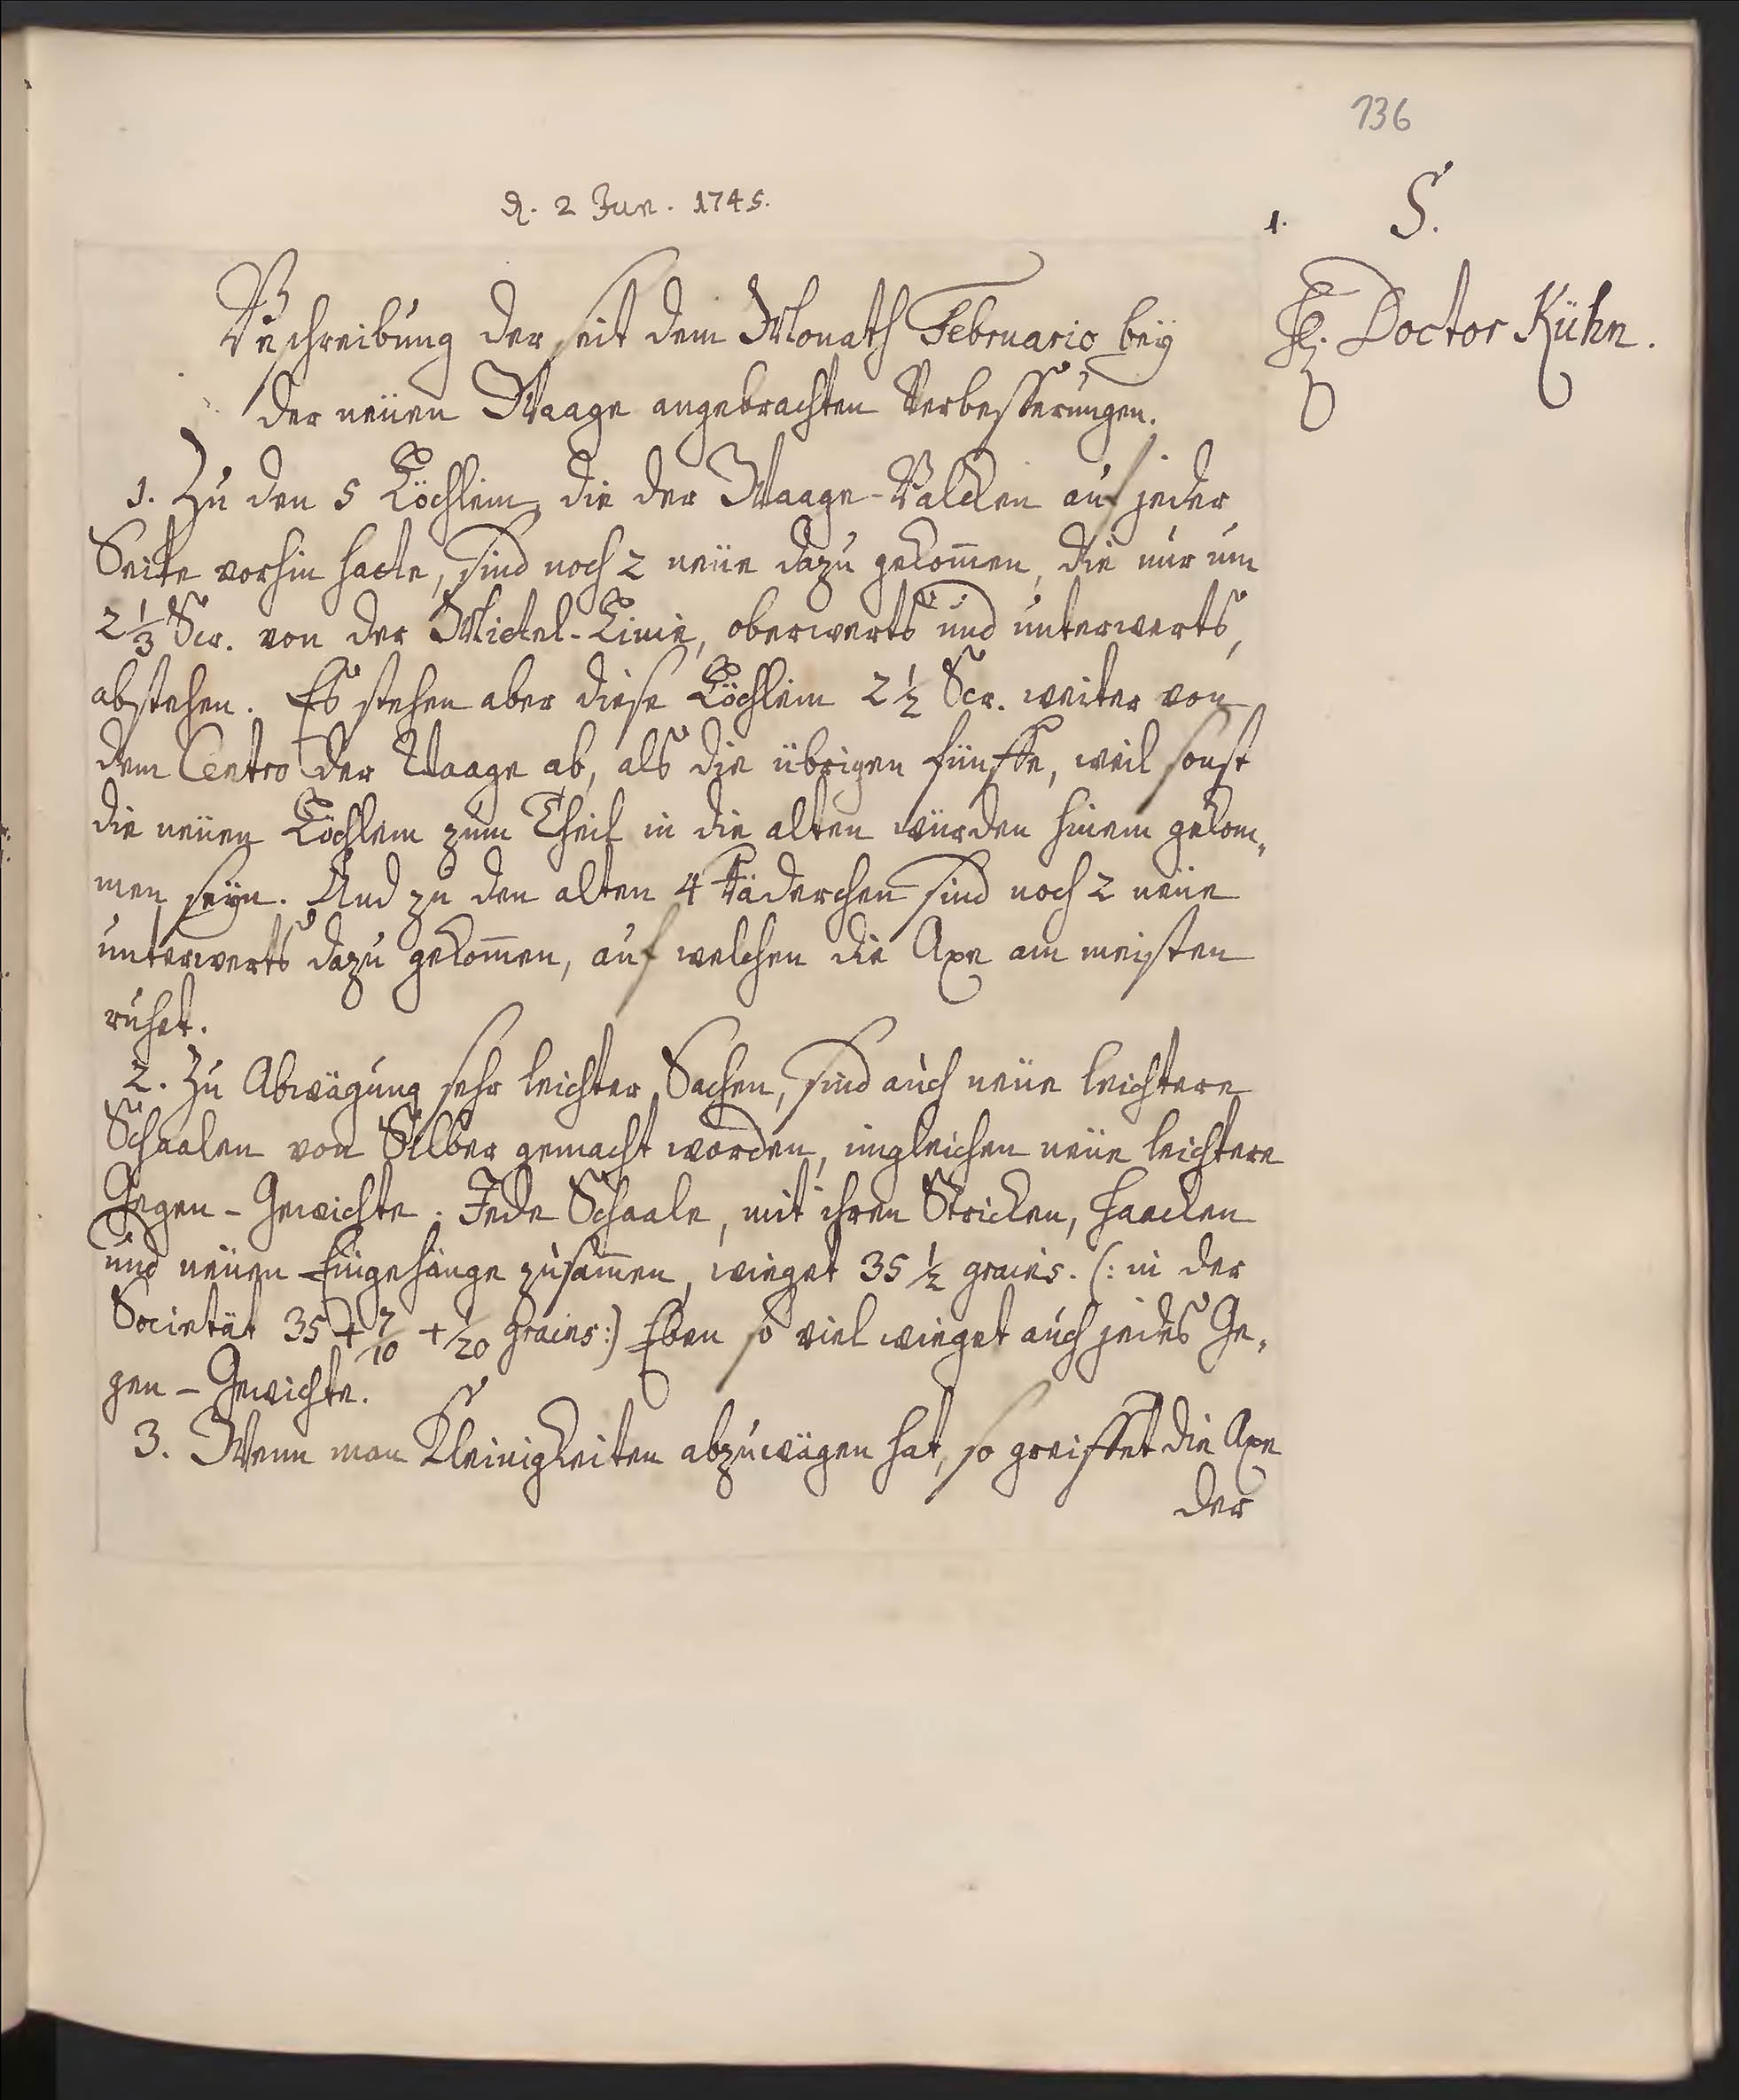 136
d. 2 Jun. 1745.
1. S.
H. Doctor Kühn.
Beschreibung der seit dem Monath Februario bey
der neüen Waage angebrachten Verbesserungen.
1. Zu den 5 Löchlein, die der Waage-Balcken auf jeder
Seite vorhin hatte, sind noch 2 neüe dazu gekom̅en, die nur um
2 1/3 Scr. von der Mittel-Linie, oberwerts und unterwerts,
abstehen. Es stehen aber diese Löchlein 2 1/2 Scr. weiter von
dem Centro der Waage ab, als die übrigen fünffe, weil sonst
die neüen Löchlein zum Theil in die alten würden hinein gekom-
men seyn. Und zu den alten 4 Räderchen sind noch 2 neüe
unterwerts dazu gekom̅en, auf welchen die Axe am meisten
ruhet.
2. Zu Abwägung sehr leichter Sachen, sind auch neüe leichtere
Schaalen von Silber gemacht worden, imgleichen neüe leichtere
Gegen-Gewichte. Jede Schaale, mit ihren Stricken, Haacken
und neüen Eingehänge zusam̅en, wieget 35 1/2 grains. (: in der
Societät 35 + 7/10 + 1/20 grains :) Eben so viel wieget auch jedes Ge-
gen-Gewichte.
3. Wenn man Kleinigkeiten abzuwägen hat, so greiffet die Axe
der